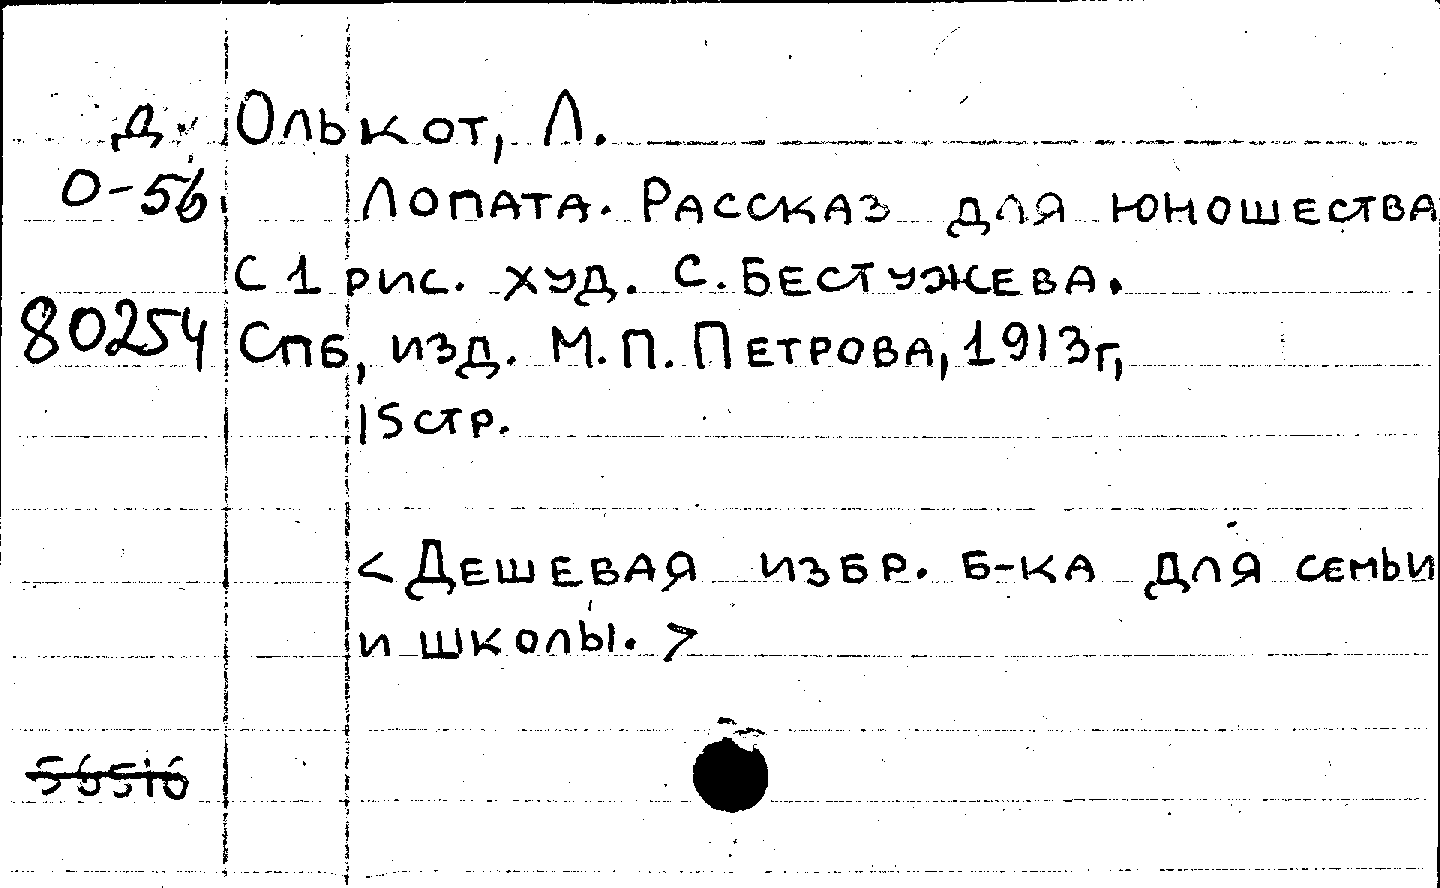 Д. Олькот, Л.
О-56 Лопата. Рассказ для юношества
С 1 рис. худ. С. Бестужева.
80254 Спб, изд. М.П. Петрова, 1913г,
15 стр.
<Дешевая избр. б-ка для семьи
и школы.>
56516